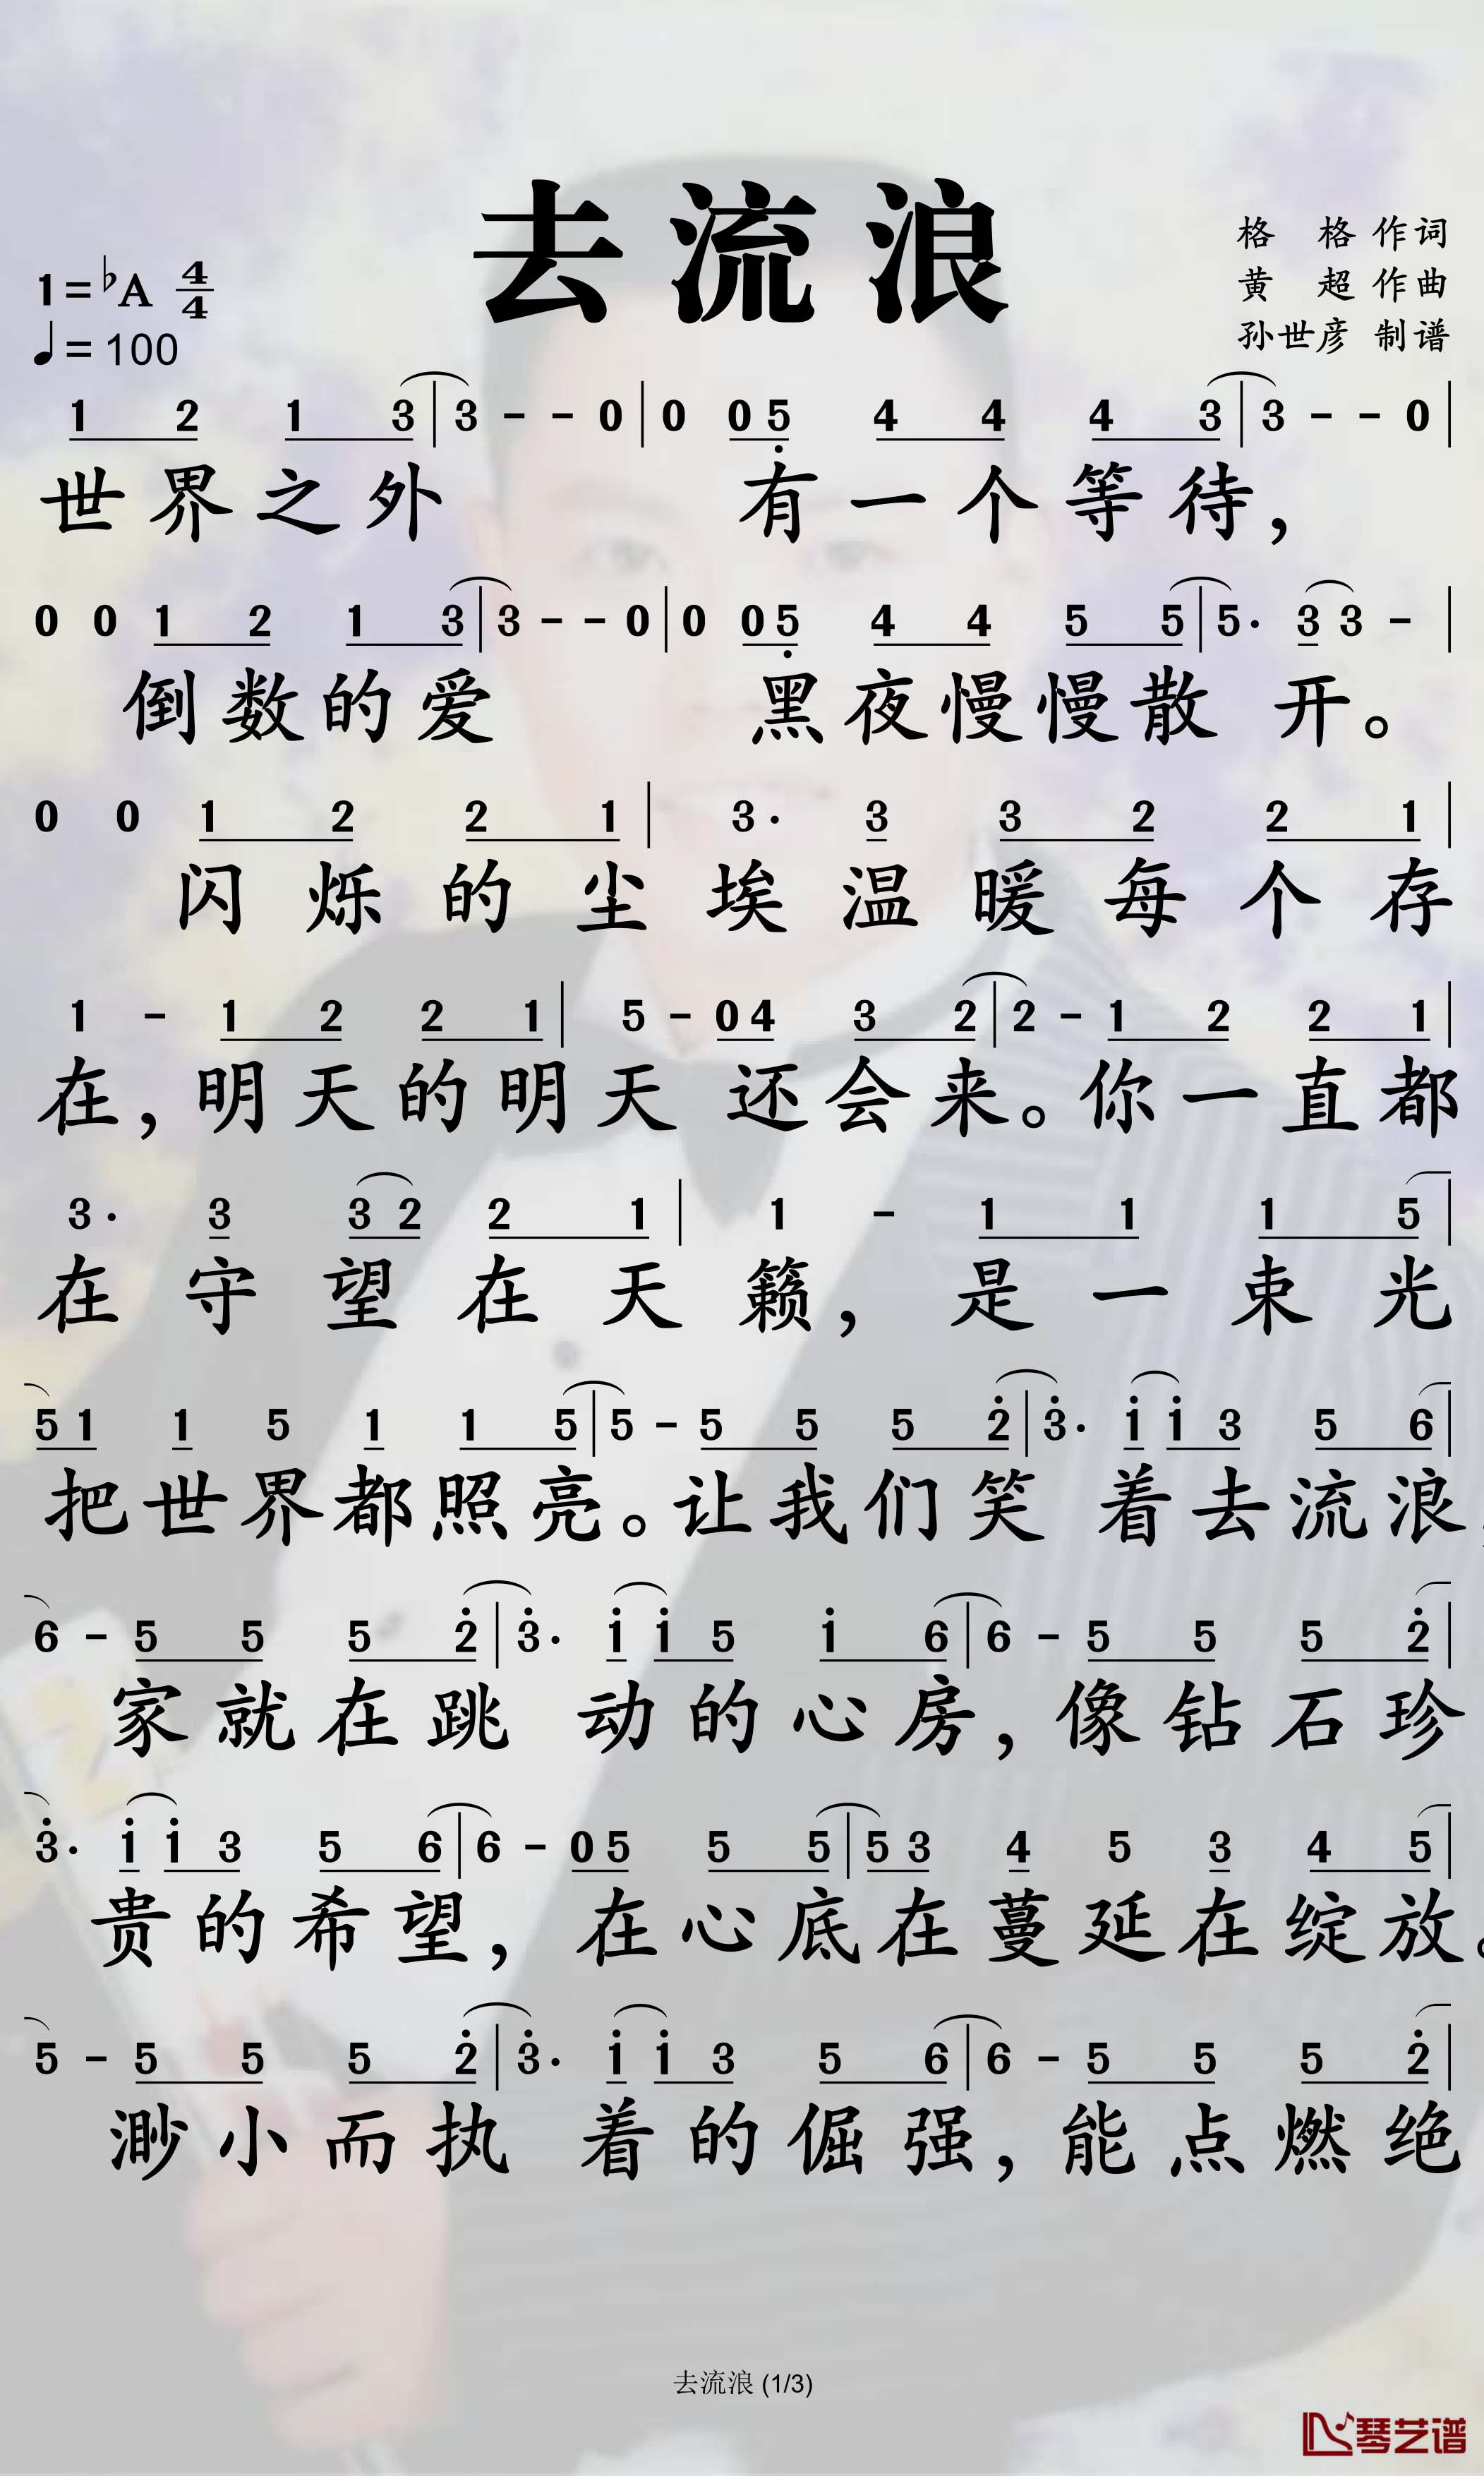 去流浪
格 格 作词
黄 超 作曲
孙世彦 制谱
1=♭A 4/4
♩=100
1 2 1 3 | 3 - - 0 | 0 0 5̣ 4 4 4 3 | 3 - - 0 |
世界之外 有一个等待，
0 0 1 2 1 3 | 3 - - 0 | 0 0 5̣ 4 4 5 5 | 5· 3 3 - |
倒数的爱 黑夜慢慢散 开。
0 0 1 2 2 1 | 3· 3 3 2 2 1 |
闪烁的尘埃温暖每个存
1 - 1 2 2 1 | 5 - 0 4 3 2 | 2 - 1 2 2 1 |
在，明天的明天 还会来。你一直都
3· 3 3 2 2 1 | 1 - 1 1 1 5 |
在守望在天籁，是一束光
5 1 1 5 1 1 5 | 5 - 5 5 5 2̇ | 3̇· 1̇ 1̇ 3 5 6 |
把世界都照亮。让我们笑 着去流浪
6 - 5 5 5 2̇ | 3̇· 1̇ 1̇ 5 1̇ 6 | 6 - 5 5 5 2̇ |
家就在跳 动的心房，像钻石珍
3̇· 1̇ 1̇ 3 5 6 | 6 - 0 5 5 5 | 5 3 4 5 3 4 5 |
贵的希望，在心底在蔓延在绽放。
5 - 5 5 5 2̇ | 3̇· 1̇ 1̇ 3 5 6 | 6 - 5 5 5 2̇ |
渺小而执 着的倔强，能点燃绝
去流浪 (1/3)
琴艺谱